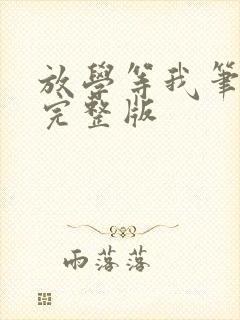 放學等我筆
完整版
雨落落